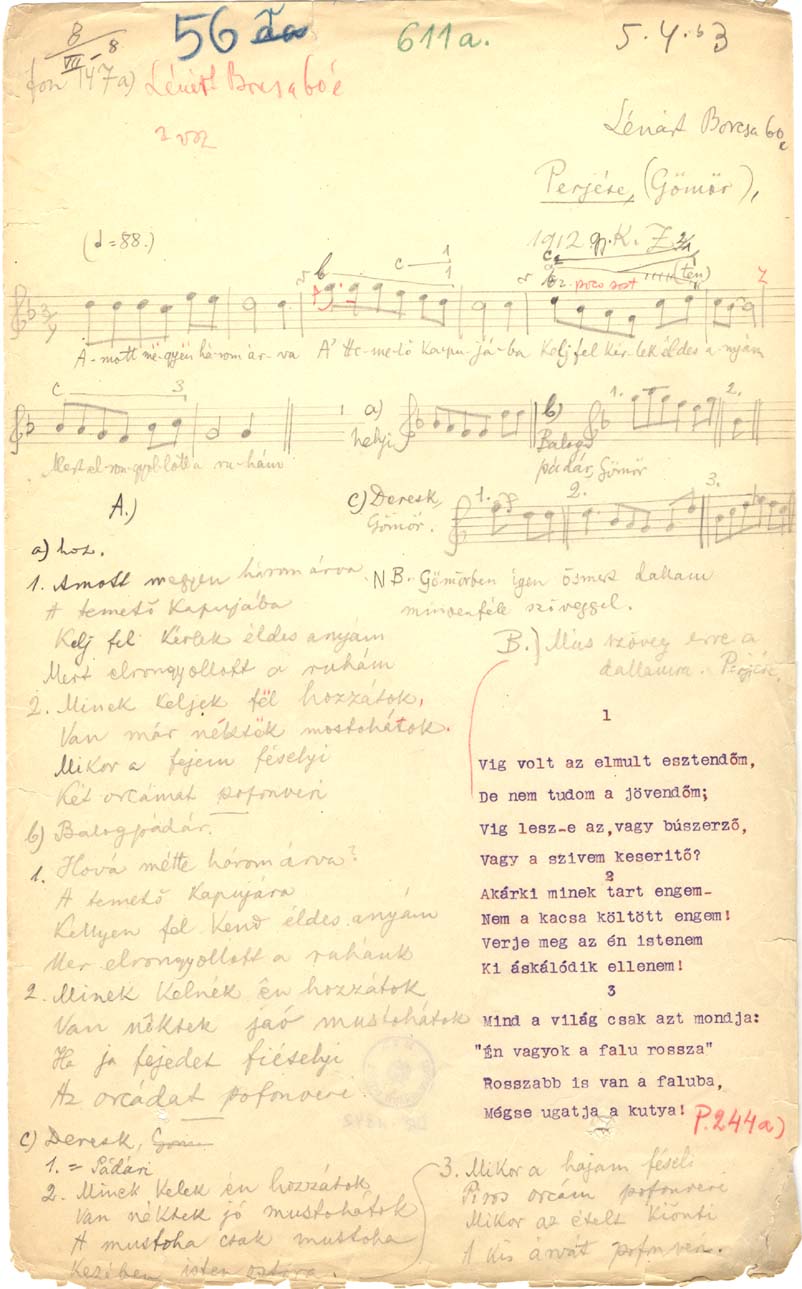 B
VII - 8
56
611a.
5.4.
fon 147a) Lénárt Borcsa 60 é
2 vsz
Lénárt Borcsa 60 é
Perjése, (Gömör),
1912 K. Z.
(♩=88.)
poco sost
(tén)
A-mott më-gyën há-rom ár-va A' te-me-tő ka-pu-já-ba Kelj fel kér-lek éldes a-nyám
Mert el-ron-gyol-lott a ru-hám
a) helyi
b) Balogpádár, Gömör
1. 2.
c) Deresk, Gömör.
1. 2. 3.
A.)
NB. Gömörben igen ösmert dallam
mindenféle szöveggel.
a) hoz.
1. Amott megyen három árva
A temető kapujába
Kelj fel kérlek éldes anyám
Mert elrongyollott a ruhám
2. Minek keljek fël hozzátok,
Van már nëktëk mostohátok.
Mikor a fejem féselyi
Két orcámat pofonveri
b) Balogpádár.
1. Hová mëtte három árva?
A temető kapujára
Kellyen fel kend éldes anyám
Mer elrongyollott a ruhánk
2. Minek kelnék én hozzátok
Van nëktek jaó mustohátok
Ha ja fejedet fiéselyi
Az orcádat pofonveri
c) Deresk,
1. = Pádári
2. Minek kelek én hozzátok
Van nëktek jó mustohátok
A mustoha csak mustoha
Kezében isten ostora.
3. Mikor a hajam féseli
Piros orcám pofonveri
Mikor az ételt kiönti
A kis árvát pofonveri.
B.) Más szöveg erre a
dallamra. Perjése,
1
Vig volt az elmult esztendőm,
De nem tudom a jövendőm;
Vig lesz-e az, vagy búszerző,
Vagy a szivem keseritő?
2
Akárki minek tart engem-
Nem a kacsa költött engem!
Verje meg az én istenem
Ki áskálódik ellenem!
3
Mind a világ csak azt mondja:
"Én vagyok a falu rossza"
Rosszabb is van a faluba,
Mégse ugatja a kutya!
P. 244a)